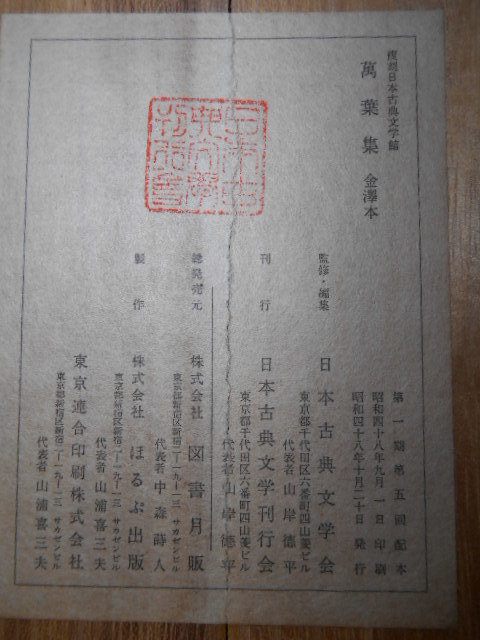 復刻日本古典文学館
萬葉集 金澤本
第一期第五回配本
昭和四十八年九月一日印刷
昭和四十八年十月二十日発行
監修・編集 日本古典文学会
東京都千代田区六番町四山菱ビル
代表者 山岸德平
刊行 日本古典文学刊行会
東京都千代田区六番町四山菱ビル
代表者 山岸德平
総発売元 株式会社 図書月販
東京都新宿区新宿二-一九-一三 サカゼンビル
代表者 中森蒔人
製作 株式会社 ほるぷ出版
東京都新宿区新宿二-一九-一三 サカゼンビル
代表者 山浦喜三夫
東京連合印刷株式会社
東京都新宿区新宿二-一九-一三 サカゼンビル
代表者 山浦喜三夫
日本古
典文學
刊行會